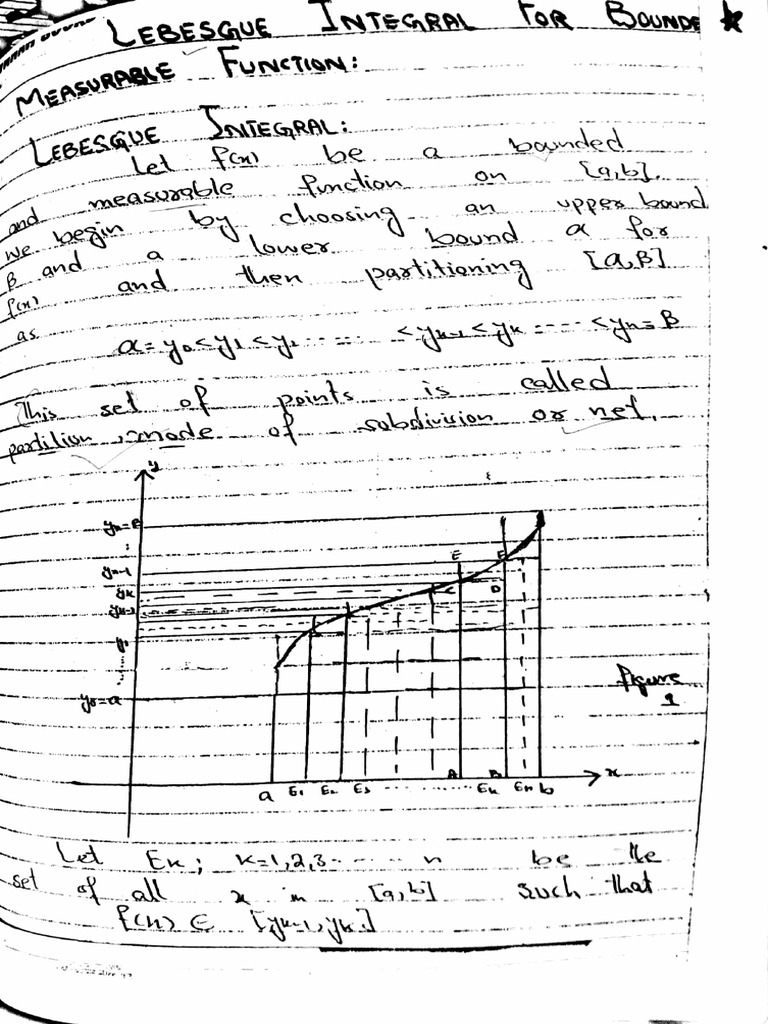 LEBESGUE INTEGRAL FOR BOUNDE
MEASURABLE FUNCTION:
LEBESGUE INTEGRAL:
Let f(x) be a bounded
and measurable function on [a,b].
We begin by choosing an upper bound
β and a lower bound α for
f(x) and then partitioning [α,β]
as
α = y₀ < y₁ < y₂ ...... < yₖ₋₁ < yₖ ...... < yₙ = β
This set of points is called
partition, mode of subdivision or net.
y
yₙ=β
yₙ₋₁
yₖ
yₖ₋₁
y₁
y₀=α
E F
C D
A B
Figure
1
a E₁ E₂ E₃ ........... Eₖ Eₙ b x
Let Eₖ; k=1,2,3...... n be the
set of all x in [a,b] such that
f(x) ∈ [yₖ₋₁, yₖ]